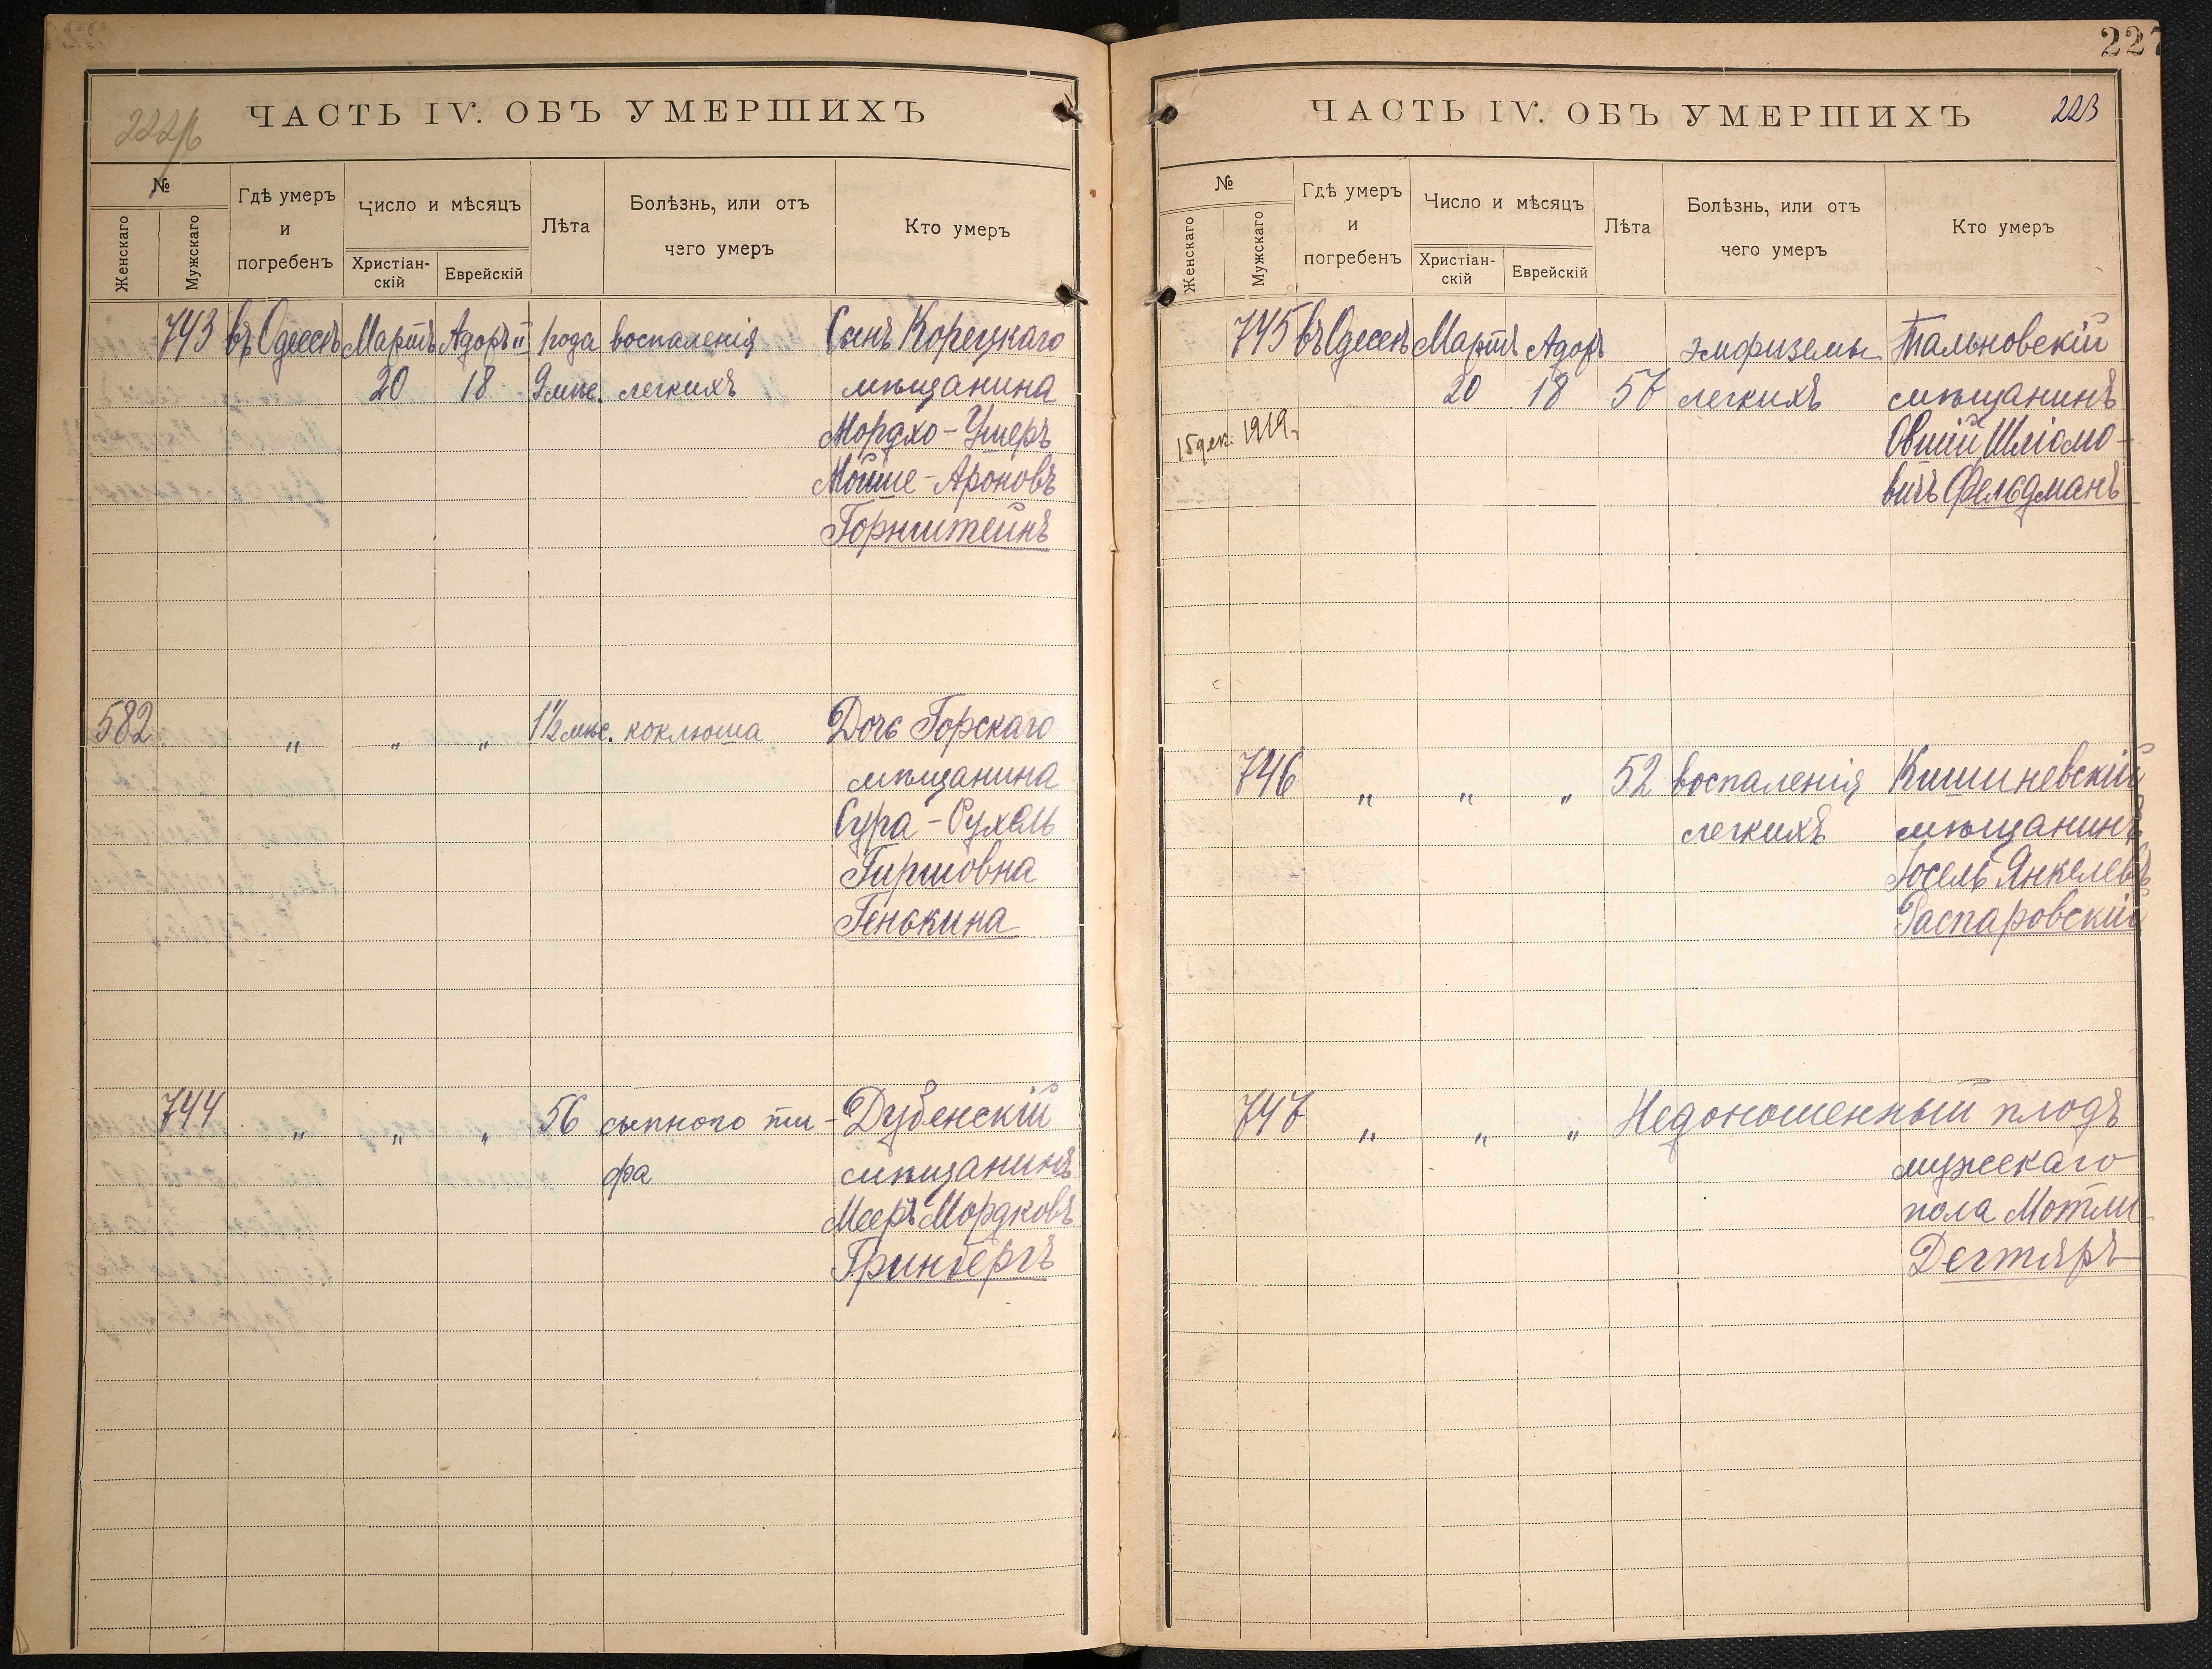 222/б
ЧАСТЬ IV. ОБЪ УМЕРШИХЪ
№
Женскаго
Мужскаго
Гдѣ умеръ
и
погребенъ
Число и мѣсяцъ
Христіан-
скій
Еврейскій
Лѣта
Болѣзнь, или отъ
чего умеръ
Кто умеръ
743 въ Одессѣ Мартъ Адоръ II 1 года воспаленія Сынъ Корецкаго
20 18 9 мѣс. легкихъ мѣщанина
Мордхо-Ушеръ
Мойше-Ароновъ
Горнштейнъ
582 " " " 1½ мѣс. коклюша Дочь Горскаго
мѣщанина
Сура-Рухель
Гиршовна
Генькина
744 " " " 56 сыпного ти- Дубенскій
фа мѣщанинъ
Мееръ Мордковъ
Гринбергъ
227
ЧАСТЬ IV. ОБЪ УМЕРШИХЪ 223
№
Женскаго
Мужскаго
Гдѣ умеръ
и
погребенъ
Число и мѣсяцъ
Христіан-
скій
Еврейскій
Лѣта
Болѣзнь, или отъ
чего умеръ
Кто умеръ
745 въ Одессѣ Мартъ Адоръ эмфиземы Тальновскій
20 18 57 легкихъ мѣщанинъ
15 дек. 1919. Овшій Шліомо-
вичъ Фельдманъ
746 " " " 52 воспаленія Кишиневскій
легкихъ мѣщанинъ
Іосель Янкелевъ
Гаспаровскій
747 " " " Недоношенный плодъ
мужскаго
пола Мотли
Дегтяръ